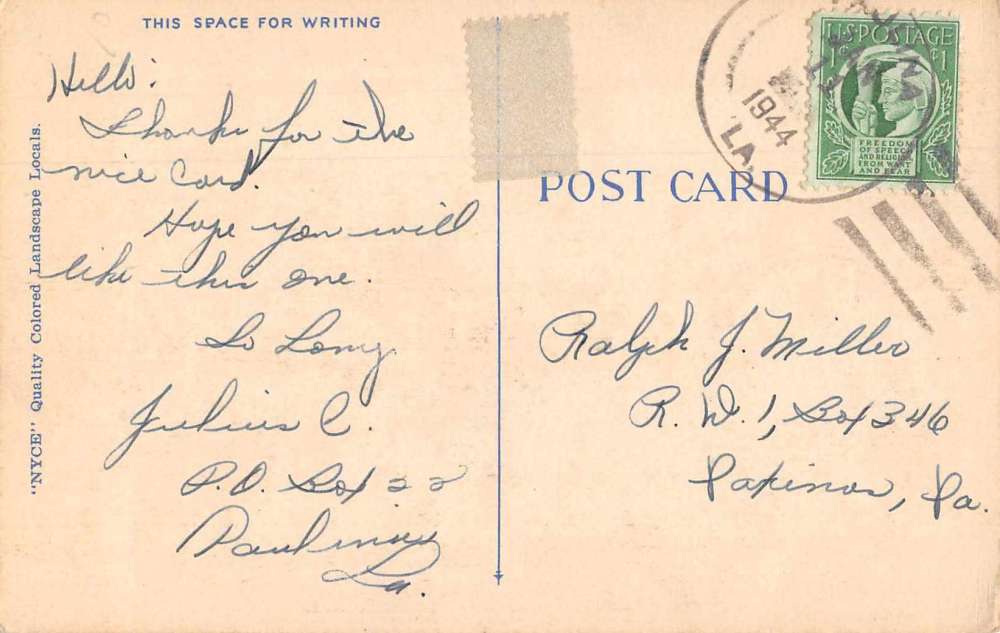 THIS SPACE FOR WRITING
Hello:
Thanks for the
nice Card.
Hope you will
like this one.
So Long
Julius C.
P.O. Box 22
Paulina
La.
"NYCE" Quality Colored Landscape Locals.
POST CARD
1944
LA.
U.S. POSTAGE
1¢ ¢1
FREEDOM
OF SPEECH
AND RELIGION,
FROM WANT
AND FEAR
Ralph J. Miller
R. W. 1, Box 346
Paxinos, Pa.